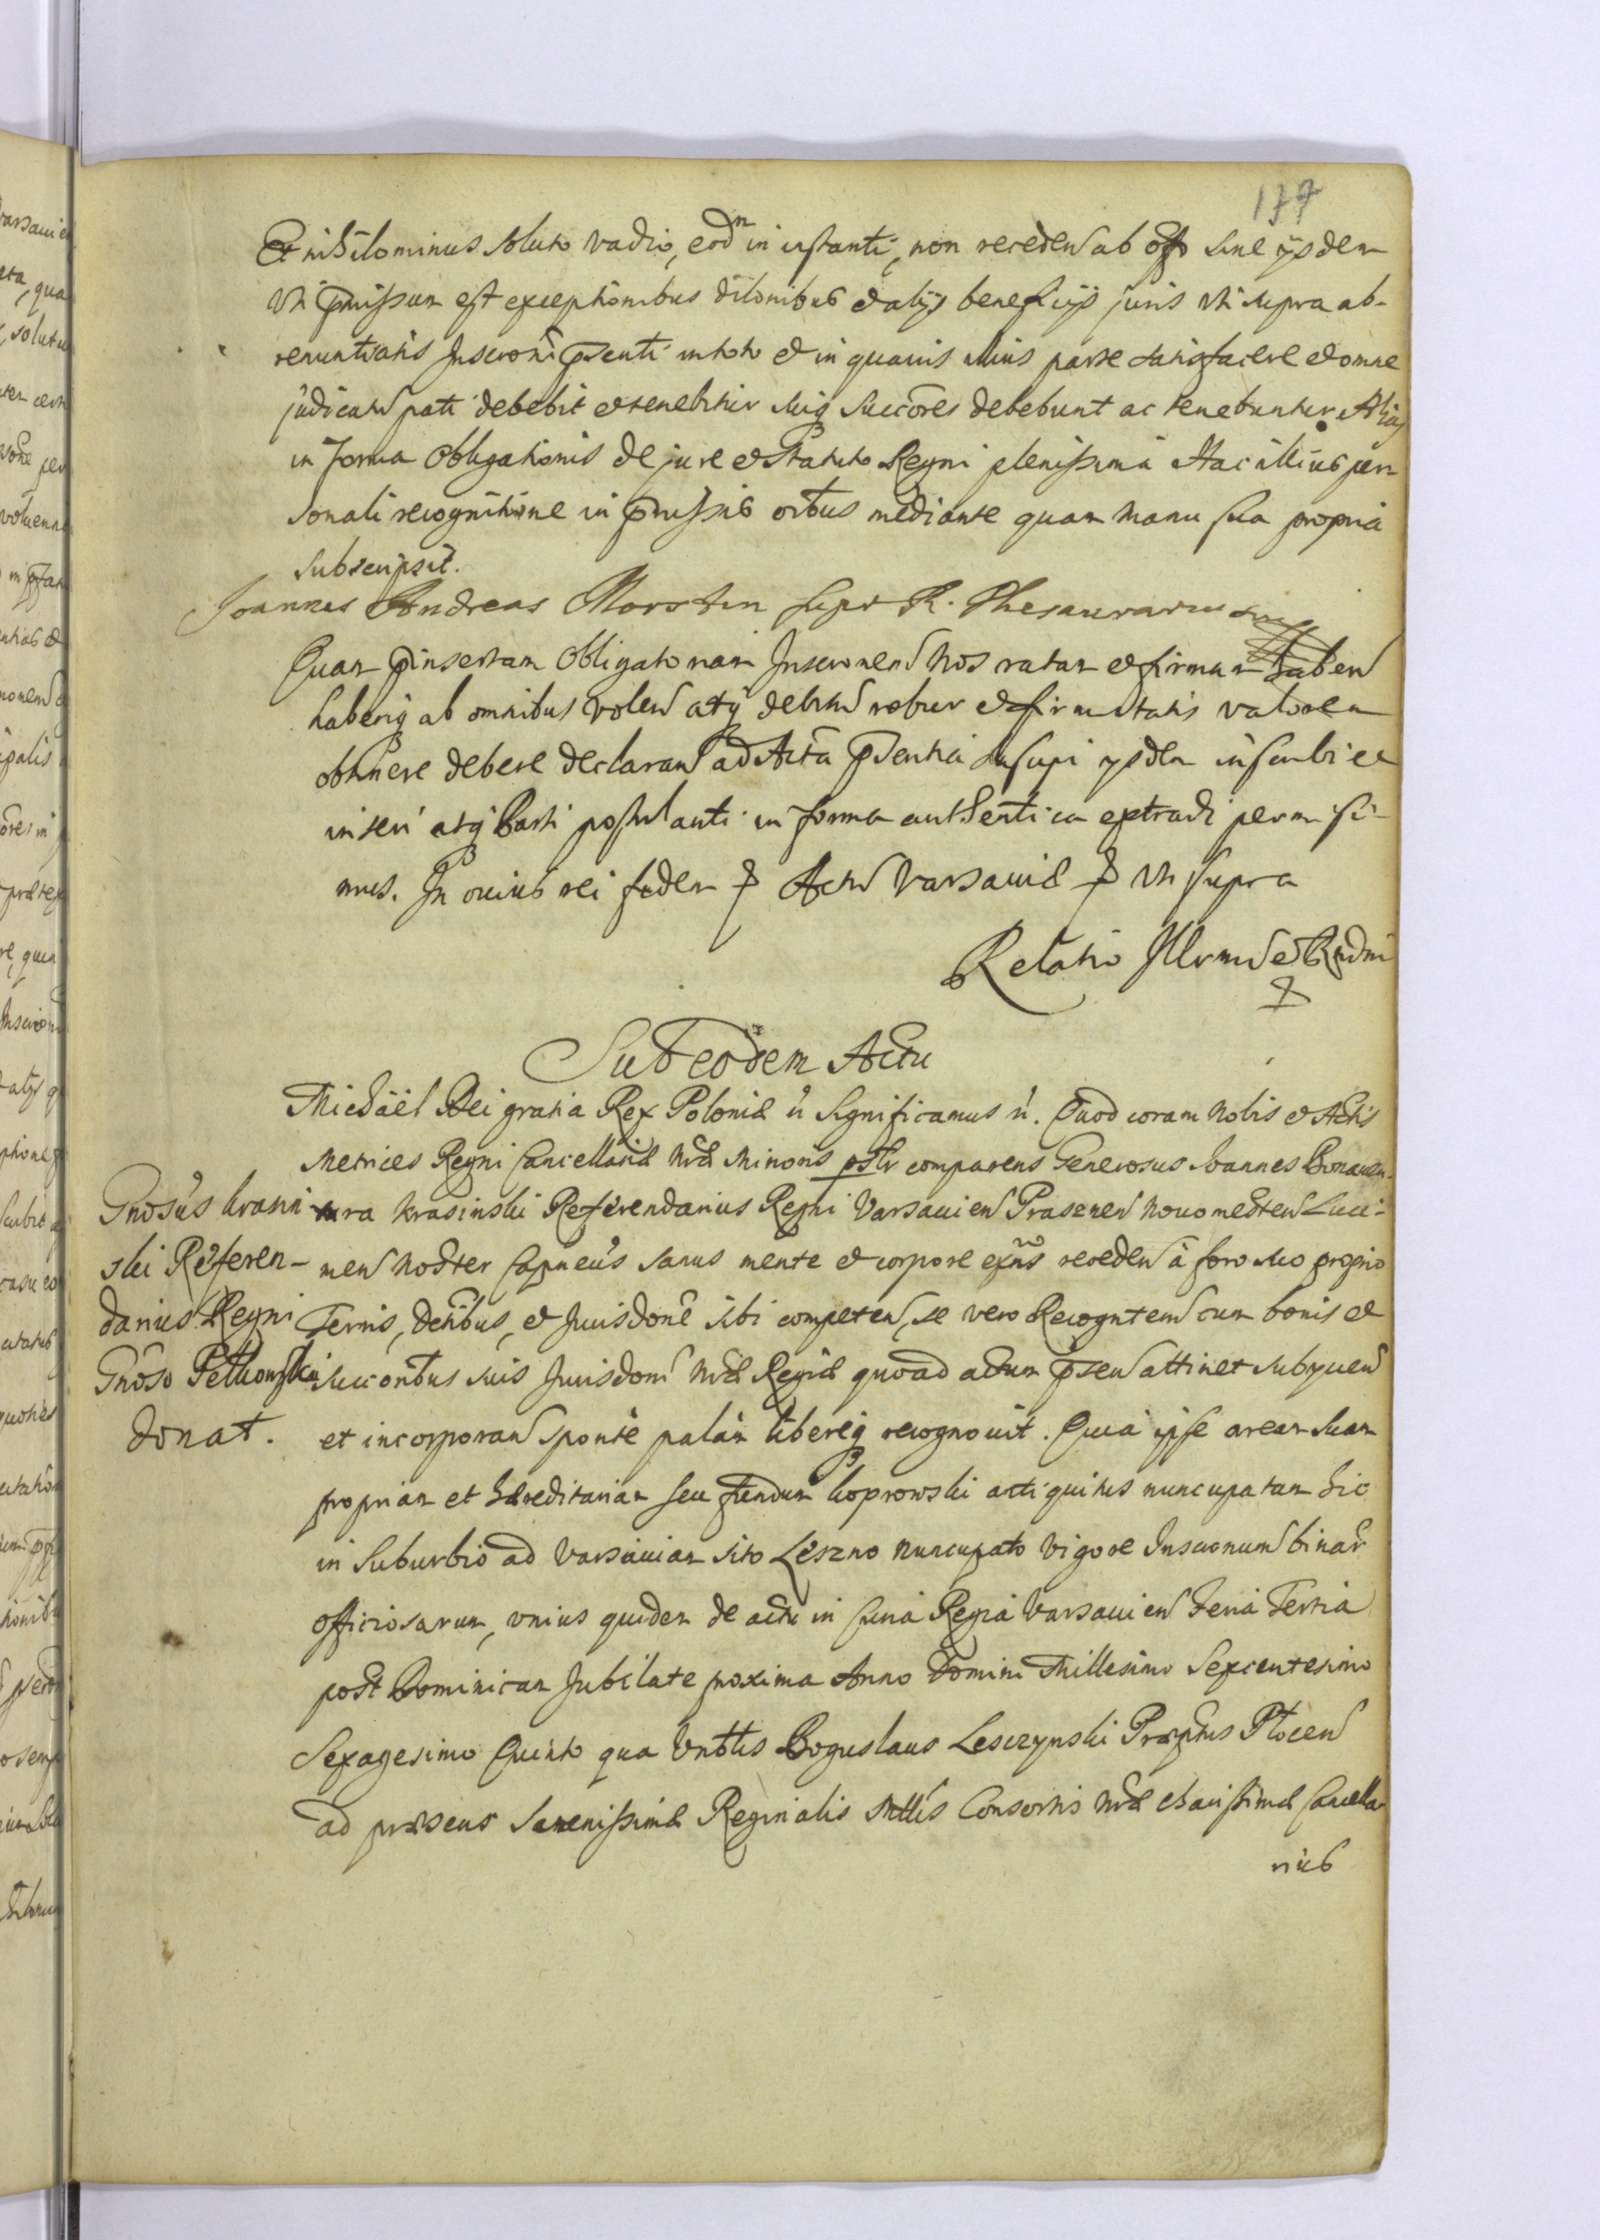 177
Et nihilominus soluto vadio, eodn in instanti, non receden ab offo sine ijsdem
Uti pmissum est exceptionibus dilonibus et alijs beneficijs juris uti supra ab-
renuntiatis Inscroni psenti in toto et in quavis illius parte satisfacere et omne
judicatu pati debebit et tenebitur suiq succores debebunt ac tenebuntur. Alias
in forma Obligationis de jure et Statuto Regni plenissima Hac illius per
sonali recognitione in pmissis oibus mediante quam manu sua propria
subscripsit.
Joannes Andreas Morstin supr R. Thesaurarius
Quam pinsertam Obligatoriam Inscronem Nos ratam et firmam haben
haberiq ab omnibus volen atq debitu robur et firmitatis valorem
obtinere debere declaran ad Acta psentia suscipi ijsdem inscribi et
inseri atq Parti postulanti in forma authentica extradi permisi-
mus. In cuius rei fidem Actu Varsaviæ uti supra
Relatio Illrmi et Rndmi
Sub eodem Actu
Michäel Dei gratia Rex Poloniæ n Significamus n. Quod coram Nobis et Actis
Metrices Regni Cancellariæ nræ Minoris pslr comparens Generosus Joannes Bonaven-
Gnosus Krasin
tura Krasinski Referendarius Regni Varsavien Prasznen Novomesten Luci-
ski Referen-
men noster Capneus sanus mente et corpore exns receden à foro suo proprio
darius Regni
Terris, Dctibus, et Jurisdone sibi competen, se vero Recogntem cum bonis et
Gnoso Petkowski
succoribus suis Jurisdoni nræ Regiæ quoad actum psen attinet subycien
donat.
et incorporan sponte palàm libereq recognovit. Quia ipse aream suam
propriam et hæreditariam seu fundum Koprowski antiquitus nuncupatam hic
in suburbio ad Varsaviam sito Leszno nuncupato vigore Inscronum binar
officiosarum, unius quidem de actu in Curia Regia Varsavien feria Tertia
post Dominicam Jubilate proxima Anno Domini Millesimo Sexcentesimo
Sexagesimo Quinto qua Unbtlis Boguslaus Lesczynski Præptus Plocen
ad præsens Serenissimæ Reginalis Mttis Consortis nræ charissimæ Cancella
rius